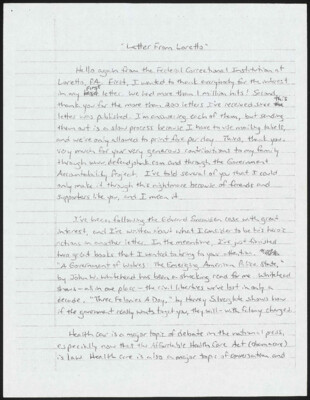 "Letter from Loretto"
Hello again from the Federal Correctional Institution at
Loretto, PA. First, I wanted to thank everybody for the interest
in my first letter. We had more than 1 million hits! Second,
thank you for the more than 200 letters I've received since this
letter was published. I'm answering each of them, but sending
them out is a slow process because I have to use mailing labels,
and we're only allowed to print five per day. Third, thank you
very much for your very generous contributions to my family
through www.defendjohnk.com and through the Government
Accountability Project. I've told several of you that I could
only make it through this nightmare because of friends and
supporters like you, and I mean it.
I've been following the Edward Snowden case with great
interest, and I've written about what I consider to be his heroic
actions in another letter. In the meantime, I've just finished
two great books that I wanted to bring to your attention.
"A Government of Wolves: The Emerging American Police State,"
by John W. Whitehead has been a shocking read for me. Whitehead
shows - all in one place - the civil liberties we've lost in only a
decade. "Three Felonies A Day," by Harvey Silverglate shows how
if the government really wants to get you, they will - with felony charges.
Health care is a major topic of debate in the national press,
especially now that the Affordable Health Care Act (Obamacare)
is law. Health care is also a major topic of conversation and